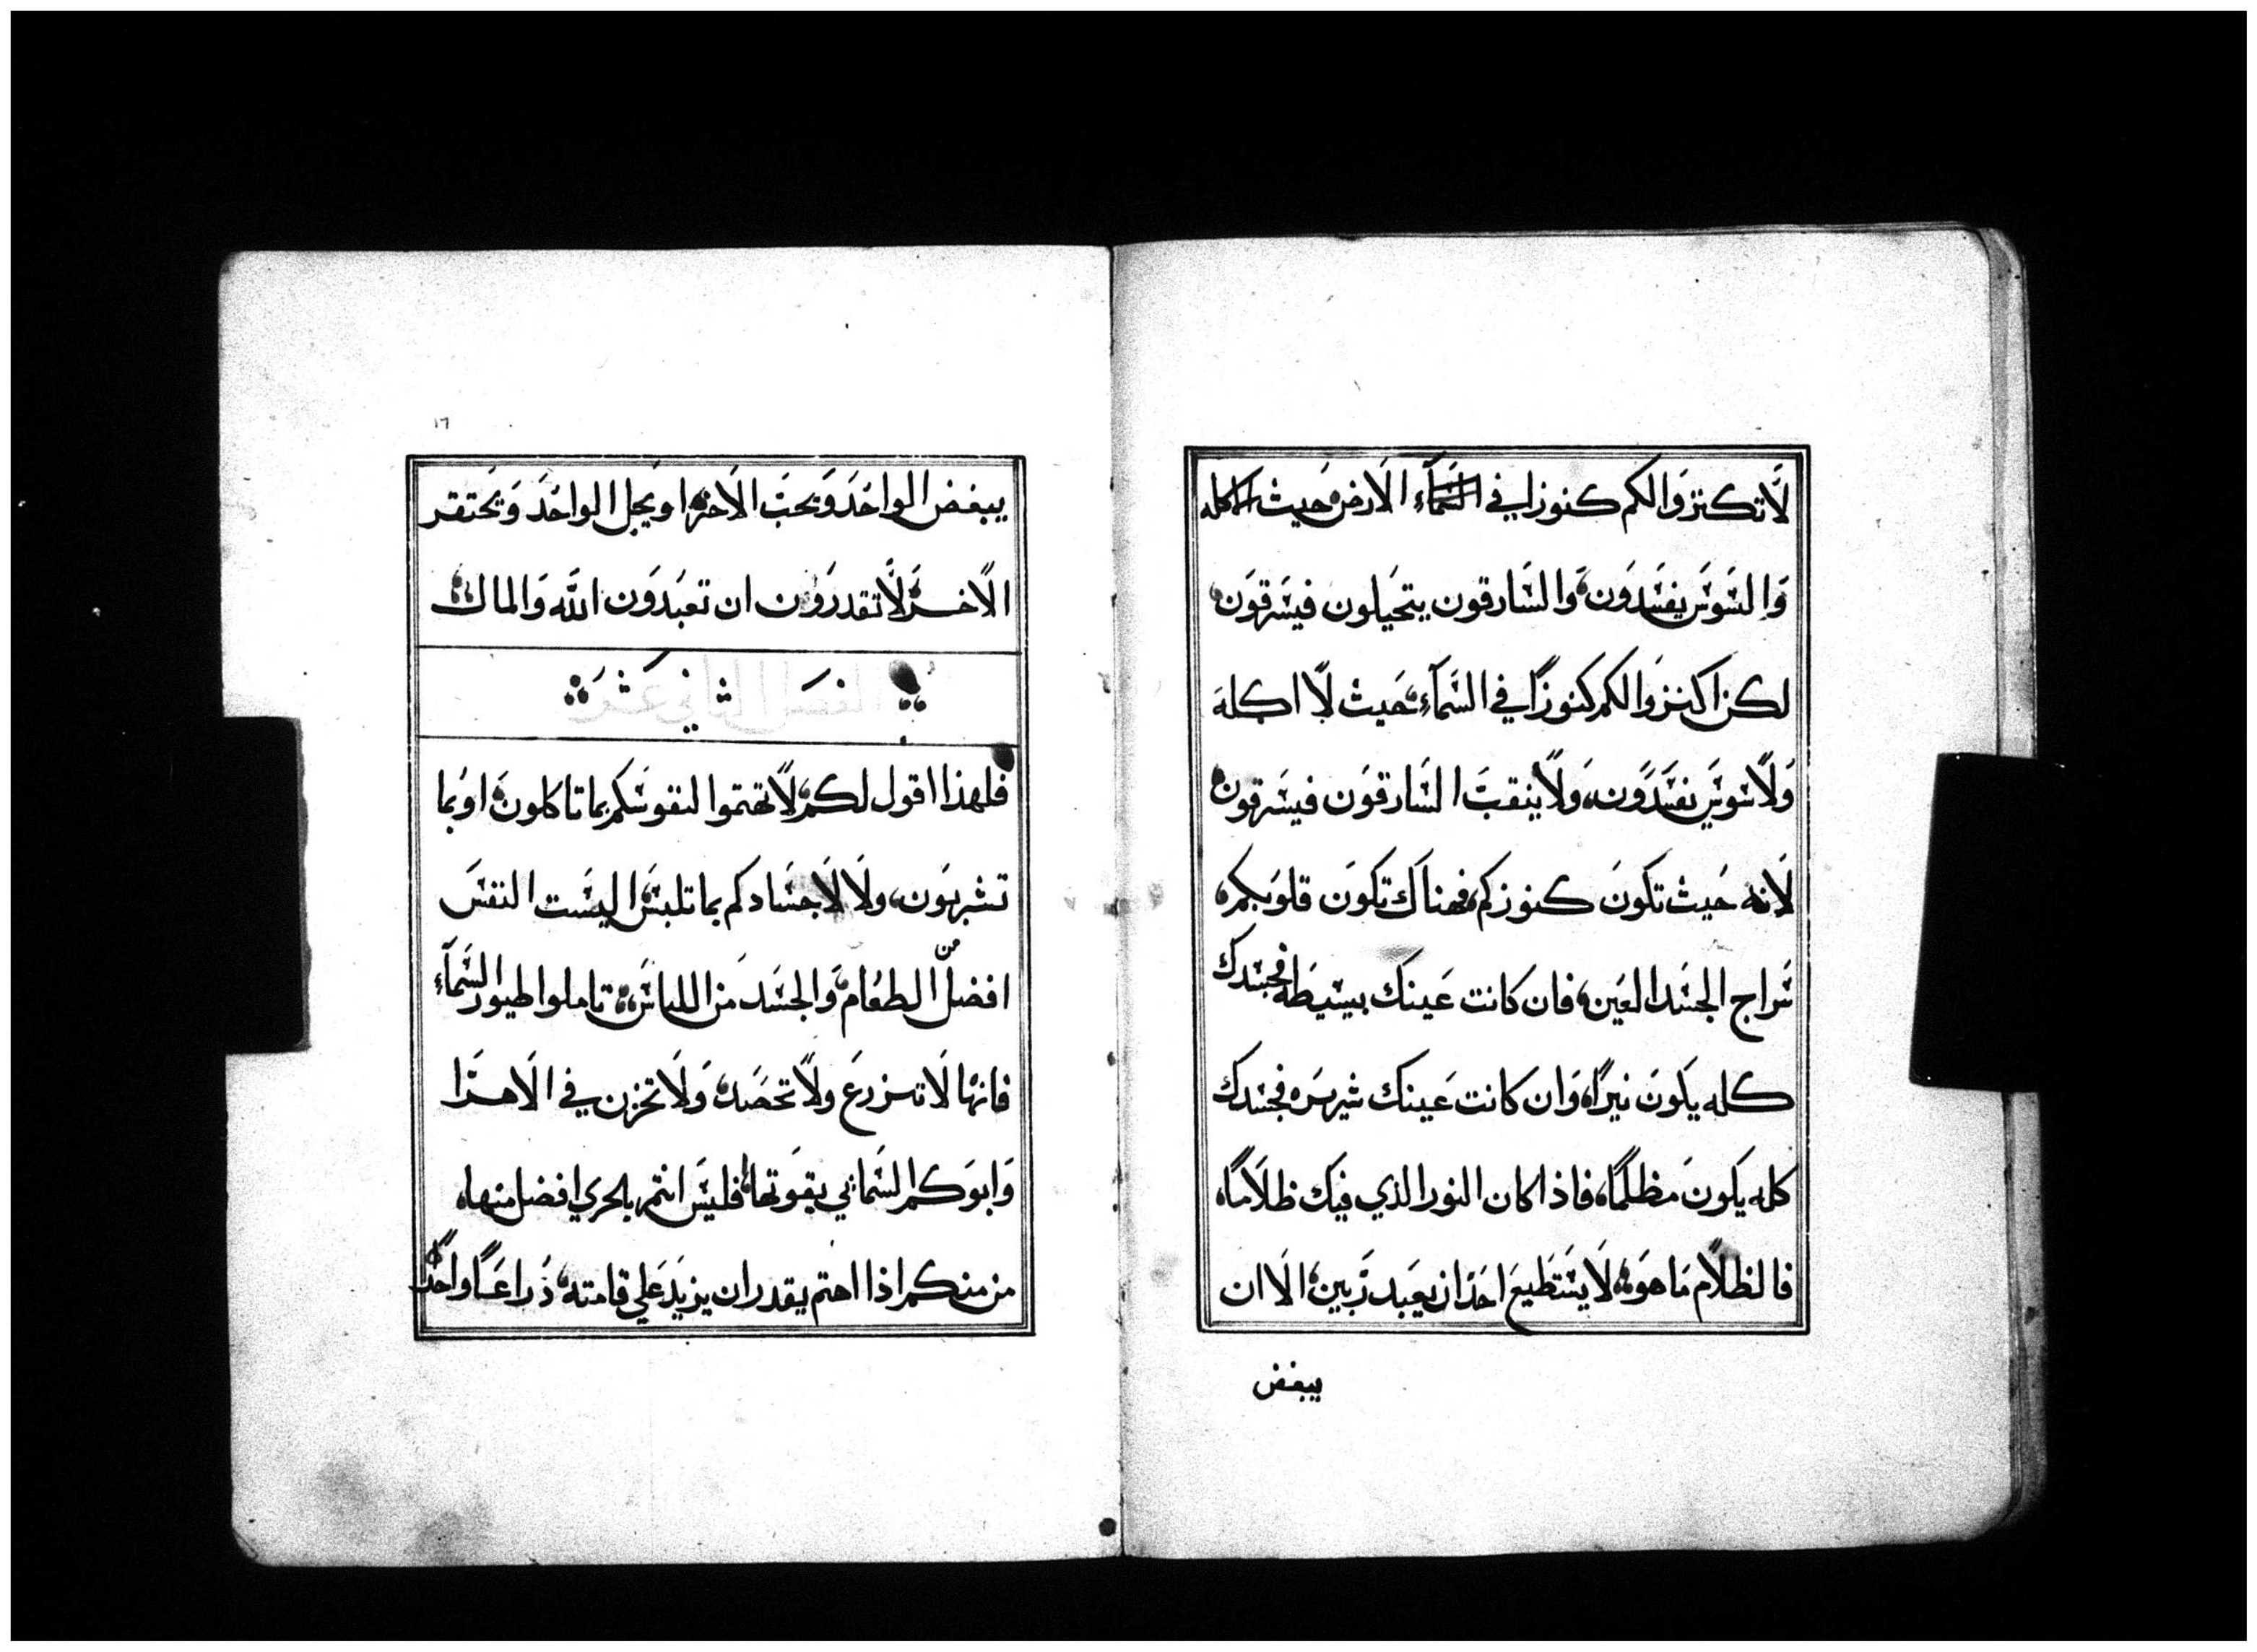 لَا تكنزوَا لكم كنوزا في السَّمَآءِ الَارض حَيث الاكله
وَالسَّوسَ يفسَدَون، وَالسَّارقون يتحَيلون فيسَرقوَن
لكن اكنزوَا لكم كنوزًا في السَّمَآءِ، حَيث لَا اكلة
وَلَا سَوسَ يفسَدَون، وَلَا ينقبَ السَارقوَن فيسَرقون
لَانه حَيث تكونَ كنوزكم، فهناك تكوَن قلوَبكم،
سَراج الجسَد العَين، فان كانت عَينك بسيطَه فجسَدك
كله يكونَ نيرًا، وَان كانت عَينك شريرَه فجسَدك
كله يكونَ مظلمًا، فاذا كان النور الذي فيك ظلَامًا،
فالظلَام مَا هوَ، لَا يسَتطَيعَ احَدَ ان يعَبد رَبين، الَا ان
يبغض
١٦
يبغض الواحَدَ وَيحبَ الَاخر، او يجل الواحَدَ وَيحَتقر
الَاخر، لَا تقدرَوَن ان تعبَدَون اللَّه وَالمال
الفصَل الثاني عَشرَ
فلهذا اقول لكم، لَا تهتموا لنفوسَكم بما تاكلونَ، او بما
تشربوَن، ولَا لَاجسَادكم بما تلبسَ، اليسَت النفسَ
افضل من الطعَام، وَالجسَد من اللباسَ، تاملوا طيور السَّمَآءِ
فانها لَا تزرعَ ولَا تحَصَد، وَلَا تخزن في الَاهرَا
وَابوَكم السَماني يقوَتها، فليسَ انتم بلحري افضل منها،
من منكم اذا اهتم يقدر ان يزيدَ عَلي قامته، ذَراعًَا واحَدًا